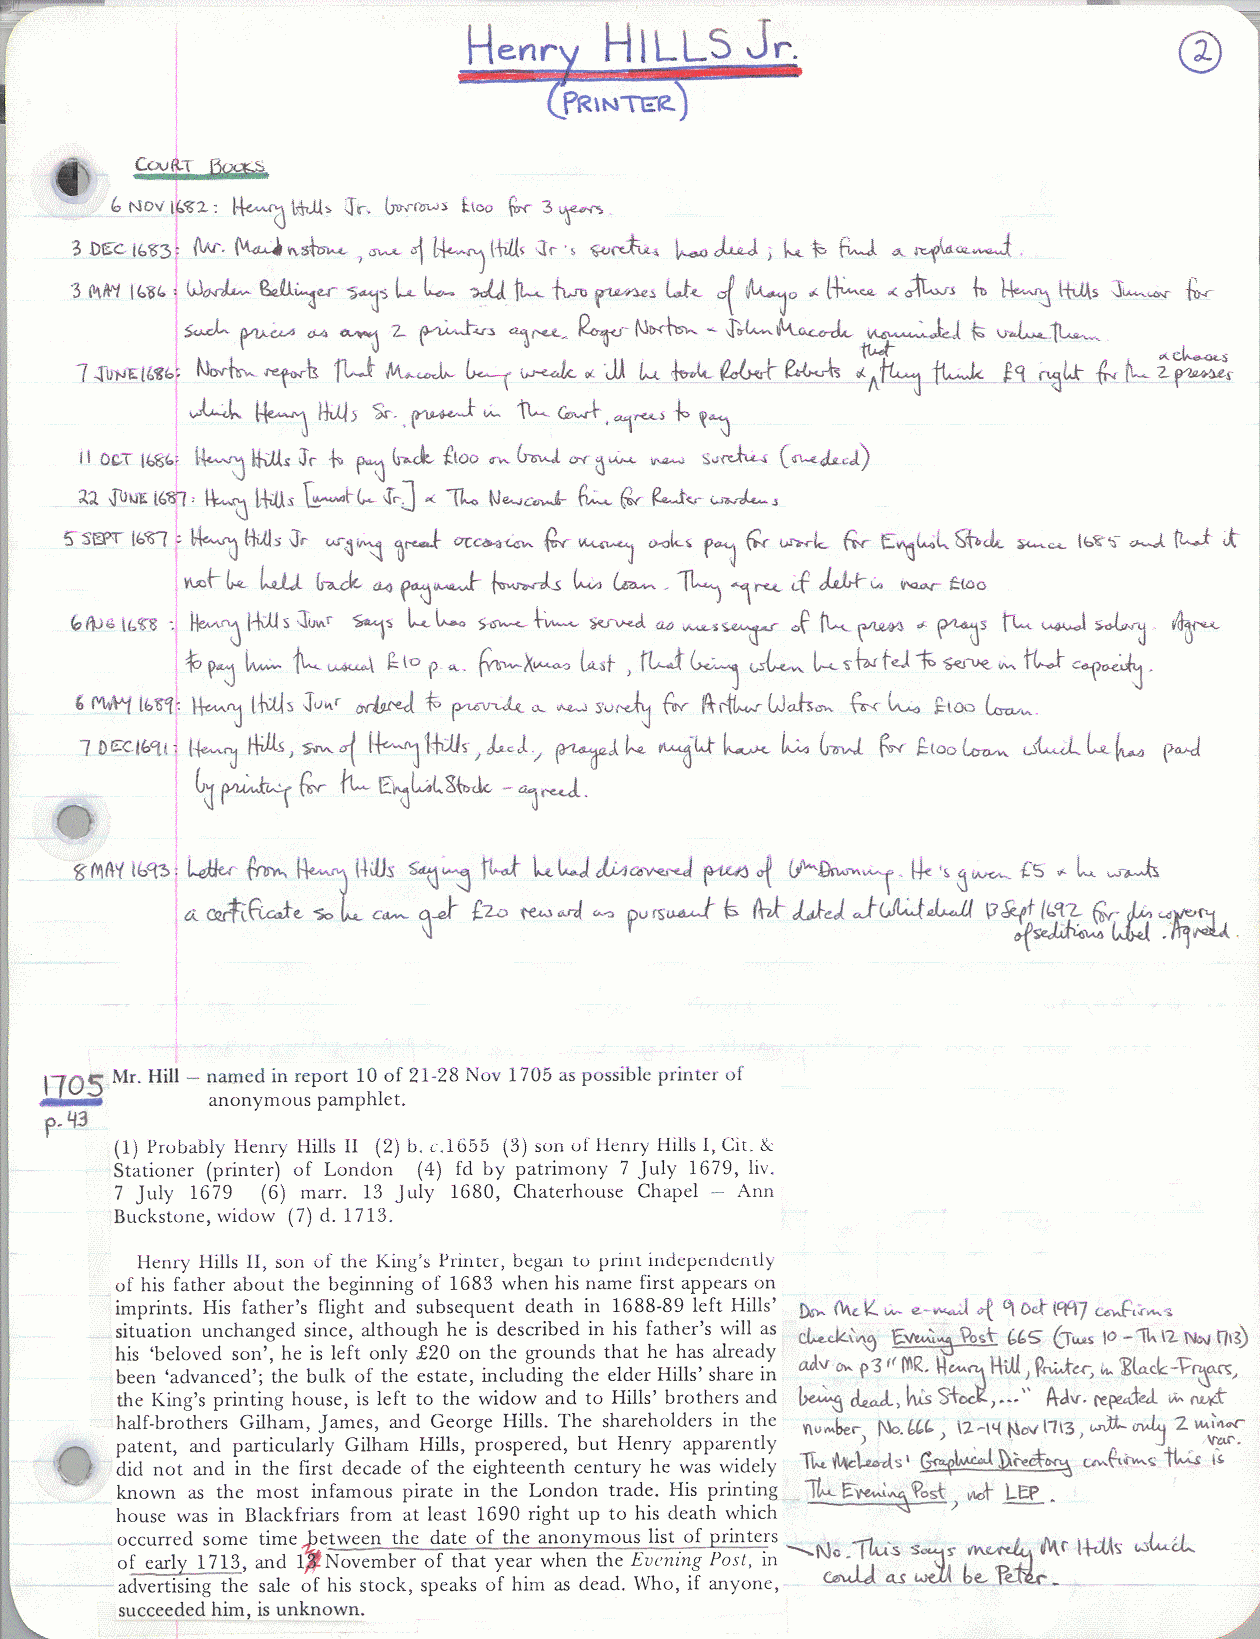 Henry HILLS Jr.
2
(PRINTER)
COURT BOOKS
6 NOV 1682: Henry Hills Jr. borrows £100 for 3 years.
3 DEC 1683: Mr. Maidnstone, one of Henry Hills Jr's sureties has died; he to find a replacement.
3 MAY 1686: Warden Bellinger says he has sold the two presses late of Mayo & Hince & others to Henry Hills Junior for
such prices as any 2 printers agree. Roger Norton - John Macock nominated to value them.
7 JUNE 1686: Norton reports that Macock being weak & ill he took Robert Roberts & that they think £9 right for the 2 presses & chases
which Henry Hills Sr., present in the Court, agrees to pay
11 OCT 1686: Henry Hills Jr to pay back £100 on bond or give new sureties (one decd)
22 JUNE 1687: Henry Hills [must be Jr.] & Tho Newcomb fine for Renter wardens
5 SEPT 1687: Henry Hills Jr urging great occasion for money asks pay for work for English Stock since 1685 and that it
not be held back as payment towards his loan. They agree if debt is near £100
6 AUG 1688: Henry Hills Junr says he has some time served as messenger of the press & prays the usual salary. Agree
to pay him the usual £10 p.a. from Xmas last, that being when he started to serve in that capacity.
6 MAY 1689: Henry Hills Junr ordered to provide a new surety for Arthur Watson for his £100 loan.
7 DEC 1691: Henry Hills, son of Henry Hills, decd., prayed he might have his bond for £100 loan which he has paid
by printing for the English Stock - agreed.
8 MAY 1693: Letter from Henry Hills saying that he had discovered press of Wm Downing. He's given £5 & he wants
a certificate so he can get £20 reward as pursuant to Act dated at Whitehall 13 Sept 1692 for discovery
of seditious libel. Agreed.
1705
p. 43
Mr. Hill – named in report 10 of 21-28 Nov 1705 as possible printer of
anonymous pamphlet.
(1) Probably Henry Hills II (2) b. c.1655 (3) son of Henry Hills I, Cit. &
Stationer (printer) of London (4) fd by patrimony 7 July 1679, liv.
7 July 1679 (6) marr. 13 July 1680, Chaterhouse Chapel – Ann
Buckstone, widow (7) d. 1713.
Henry Hills II, son of the King's Printer, began to print independently
of his father about the beginning of 1683 when his name first appears on
imprints. His father's flight and subsequent death in 1688-89 left Hills'
situation unchanged since, although he is described in his father's will as
his 'beloved son', he is left only £20 on the grounds that he has already
been 'advanced'; the bulk of the estate, including the elder Hills' share in
the King's printing house, is left to the widow and to Hills' brothers and
half-brothers Gilham, James, and George Hills. The shareholders in the
patent, and particularly Gilham Hills, prospered, but Henry apparently
did not and in the first decade of the eighteenth century he was widely
known as the most infamous pirate in the London trade. His printing
house was in Blackfriars from at least 1690 right up to his death which
occurred some time between the date of the anonymous list of printers
of early 1713, and 12 November of that year when the Evening Post, in
advertising the sale of his stock, speaks of him as dead. Who, if anyone,
succeeded him, is unknown.
Don McK in e-mail of 9 Oct 1997 confirms
checking Evening Post 665 (Tues 10 - Th 12 Nov 1713)
adv on p3 "MR. Henry Hill, Printer, in Black-Fryars,
being dead, his Stock,..." Adv. repeated in next
number, No. 666, 12-14 Nov 1713, with only 2 minor
var.
The McLeods' Graphical Directory confirms this is
The Evening Post, not LEP.
No. This says merely Mr Hills which
could as well be Peter.